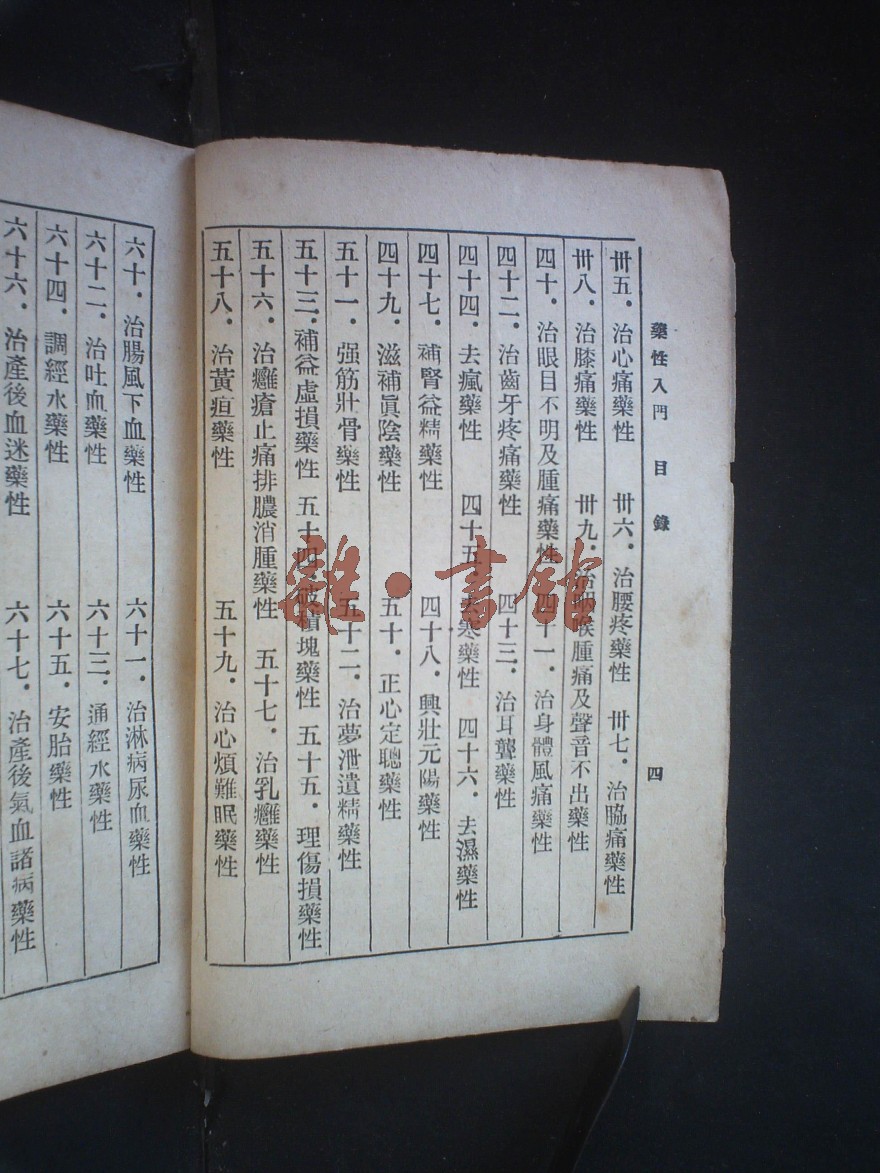 藥性入門 目錄 四
卅五．治心痛藥性 卅六．治腰疼藥性 卅七．治脇痛藥性
卅八．治膝痛藥性 卅九．治咽喉腫痛及聲音不出藥性
四十．治眼目不明及腫痛藥性 四十一．治身體風痛藥性
四十二．治齒牙疼痛藥性 四十三．治耳聾藥性
四十四．去瘋藥性 四十五．去寒藥性 四十六．去濕藥性
四十七．補腎益精藥性 四十八．興壯元陽藥性
四十九．滋補眞陰藥性 五十．正心定聰藥性
五十一．强筋壯骨藥性 五十二．治夢泄遺精藥性
五十三．補益虛損藥性 五十四．破積塊藥性 五十五．理傷損藥性
五十六．治癰瘡止痛排膿消腫藥性 五十七．治乳癰藥性
五十八．治黃疸藥性 五十九．治心煩難眠藥性
六十．治腸風下血藥性 六十一．治淋病尿血藥性
六十二．治吐血藥性 六十三．通經水藥性
六十四．調經水藥性 六十五．安胎藥性
六十六．治產後血迷藥性 六十七．治產後氣血諸病藥性
雜·書館